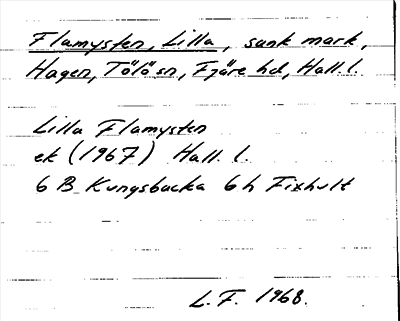 Flamysten, Lilla, sank mark,
Hagen, Tölö sn, Fjäre hd, Hall. l.
Lilla Flamysten
ek (1967) Hall. l.
6 B Kungsbacka 6 h Fixhult
L. F. 1968.